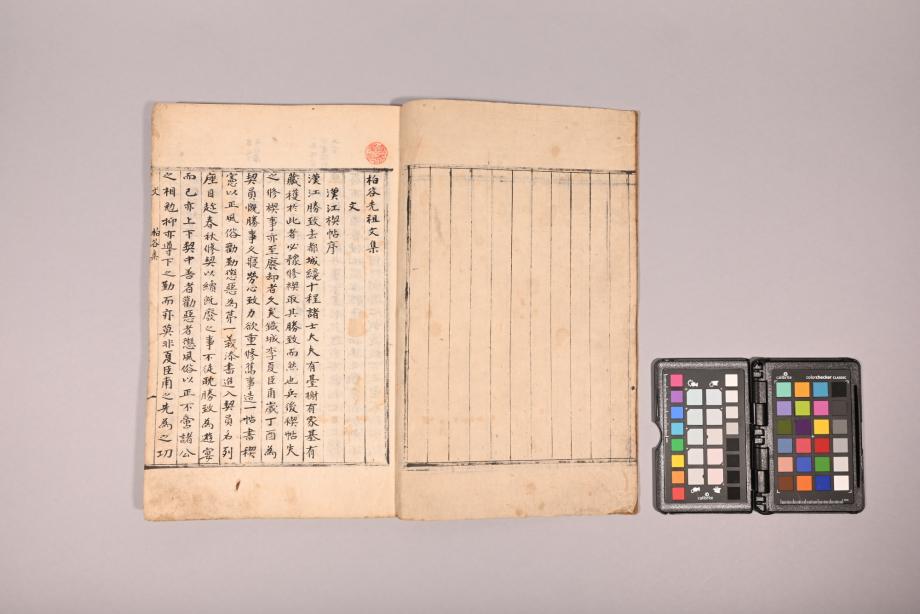 柏谷先祖文集
文
漢江禊帖序
漢江勝致去都城纔十程諸士大夫有臺榭有家墓有
藏穫於此者必豫修禊取其勝致而然也兵後禊帖失
之修禊事亦至廢却者久矣鐵城李夏臣甫歲丁酉為
契員慨勝事之寢勞心致力欲重修舊事造一帖書稧
憲以正風俗勸勤懲惡為第一義添書進入契員名列
座目越春秋修契以續旣廢之事不徒耽勝致為遊宴
而已亦上下契中善者勸惡者懲風俗以正不啻諸公
之相勉抑亦導下之勤而非莫非夏臣甫之先為之功
文
柏谷集
一
calibrite
calibrite
colorchecker CLASSIC